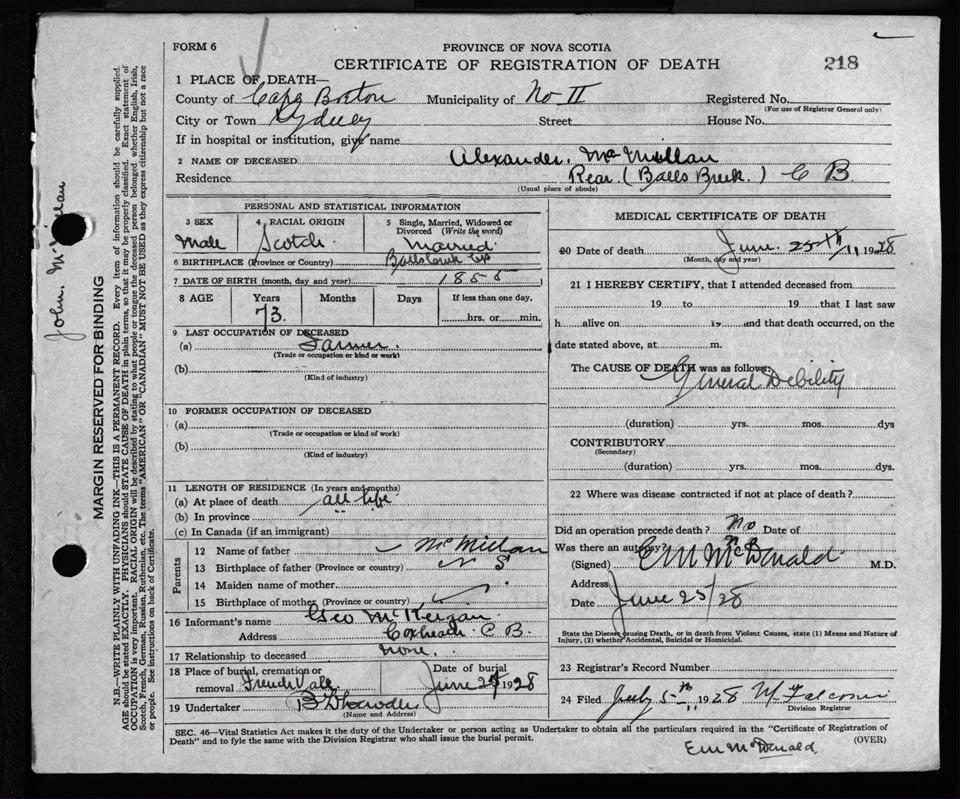 FORM 6
PROVINCE OF NOVA SCOTIA
CERTIFICATE OF REGISTRATION OF DEATH
218
1 PLACE OF DEATH—
County of Cape Breton Municipality of No II Registered No.
(For use of Registrar General only)
City or Town Sydney Street House No.
If in hospital or institution, give name
2 NAME OF DECEASED Alexander. McMillan
Residence Rear. (Balls Creek.) C B.
(Usual place of abode)
PERSONAL AND STATISTICAL INFORMATION
3 SEX
Male
4 RACIAL ORIGIN
Scotch
5 Single, Married, Widowed or Divorced (Write the word)
Married
6 BIRTHPLACE (Province or Country)
7 DATE OF BIRTH (month, day and year) 1855
8 AGE Years Months Days If less than one day.
73. hrs. or min.
9 LAST OCCUPATION OF DECEASED
(a) Farmer.
(Trade or occupation or kind or work)
(b)
(Kind of industry)
10 FORMER OCCUPATION OF DECEASED
(a)
(Trade or occupation or kind of work)
(b)
(Kind of industry)
11 LENGTH OF RESIDENCE (In years and months)
(a) At place of death all life
(b) In province " "
(c) In Canada (if an immigrant)
Parents
12 Name of father McMillan
13 Birthplace of father (Province or country) N S
14 Maiden name of mother
15 Birthplace of mother (Province or country)
16 Informant's name Geo McKeigan
Address Coxheath C B.
17 Relationship to deceased none.
18 Place of burial, cremation or removal French Vale
Date of burial June 1928
19 Undertaker
(Name and Address)
MEDICAL CERTIFICATE OF DEATH
20 Date of death June 25th 1928
(Month, day and year)
21 I HEREBY CERTIFY, that I attended deceased from
19 to 19 that I last saw
h alive on 19 and that death occurred, on the
date stated above, at m.
The CAUSE OF DEATH was as follows:
General Debility
(duration) yrs. mos. dys
CONTRIBUTORY
(Secondary)
(duration) yrs. mos. dys.
22 Where was disease contracted if not at place of death?
Did an operation precede death? No Date of
Was there an autopsy? no
(Signed) E M McDonald M.D.
Address
Date June 25/28
State the Disease causing Death, or in death from Violent Causes, state (1) Means and Nature of
Injury, (2) whether Accidental, Suicidal or Homicidal.
23 Registrar's Record Number
24 Filed July 5th 1928
Division Registrar
SEC. 46—Vital Statistics Act makes it the duty of the Undertaker or person acting as Undertaker to obtain all the particulars required in the "Certificate of Registration of
Death" and to fyle the same with the Division Registrar who shall issue the burial permit.
(OVER)
Em McDonald
John. McMillan
MARGIN RESERVED FOR BINDING
N.B.—WRITE PLAINLY WITH UNFADING INK—THIS IS A PERMANENT RECORD. Every item of information should be carefully supplied.
AGE should be stated EXACTLY. PHYSICIANS should STATE CAUSE OF DEATH in plain terms, so that it may be properly classified. Exact statement of
OCCUPATION is very important. RACIAL ORIGIN will be described by stating to what people or tongue the deceased person belonged whether English, Irish,
Scotch, French, German, Russian, Ruthenian, etc. The terms "AMERICAN" OR "CANADIAN" MUST NOT BE USED as they express citizenship but not a race
or people. See instructions on back of Certificate.